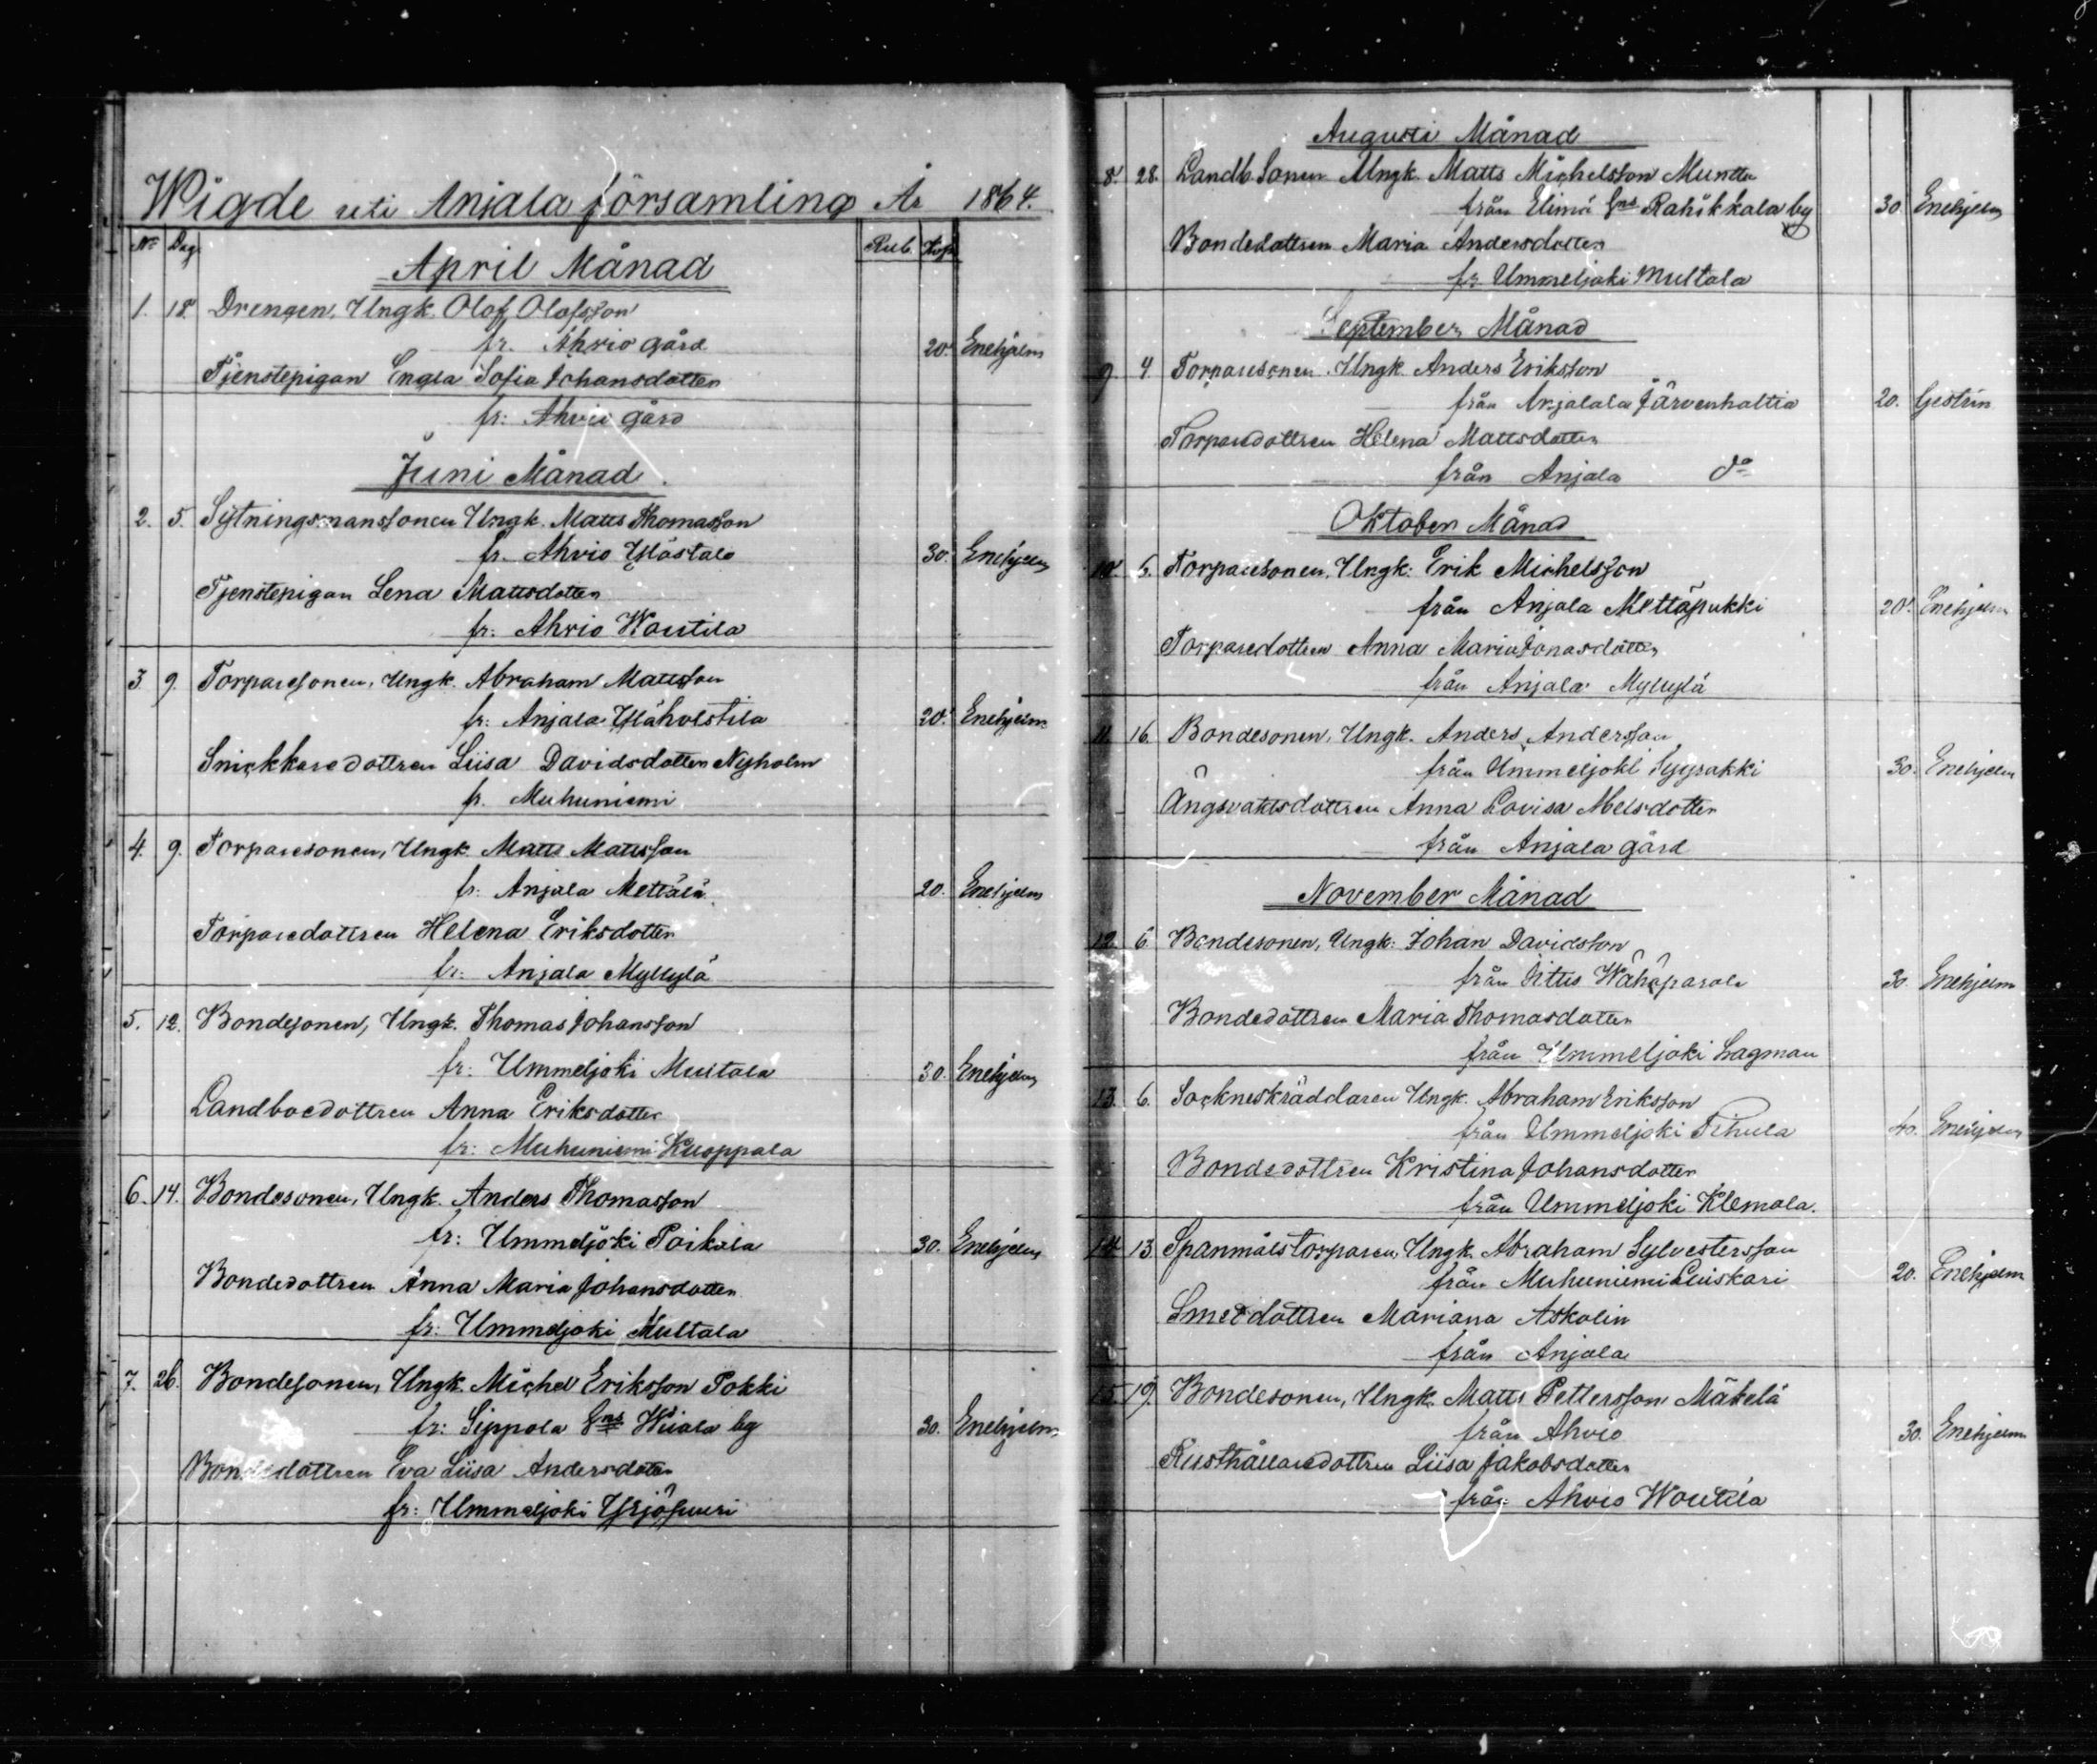 Wigde uti Anjala församling År 1864.
No Dag. Rub. Kop.
April Månad
1. 18. Drengen, Ungk. Olof Olofsson
fr. Ahvio gård 20. Enehjelm
Tjenstepigan Engla Sofia Johansdotter
fr: Ahvio gård
Juni Månad.
2. 5. Sytningsmanssonen Ungk. Matts Thomasson
fr. Ahvio Ylöstalo 30. Enehjelm
Tjenstepigan Lena Mattsdotter
fr: Ahvio Woutila
3. 9. Torparesonen, Ungk. Abraham Mattsson
fr: Anjala 20. Enehjelm
Snickkaredottren Liisa Davidsdotter Nyholm
fr. Muhuniemi
4. 9. Torparesonen, Ungk. Matts Mattsson
fr: Anjala Mettälä 20. Enehjelm
Torparedottren Helena Eriksdotter
fr: Anjala Myllylä
5. 12. Bondesonen, Ungk. Thomas Johansson
fr: Ummeljoki Multala 30. Enehjelm
Landboedottren Anna Eriksdotter
fr: Muhuniemi Kuoppala
6. 14. Bondesonen, Ungk. Anders Thomasson
fr: Ummeljoki Poikala 30. Enehjelm
Bondedottren Anna Maria Johansdotter
fr: Ummeljoki Multala
7. 26. Bondesonen, Ungk. Michel Eriksson Pokki
fr: Sippola Sns Wiiala by 30. Enehjelm
Bondedottren Eva Liisa Andersdotter
fr: Ummeljoki Yrjösuuri
Augusti Månad
8. 28. Landb. Sonen Ungk. Matts Michelsson Muntta
från Elimä Sns Rahikkala by 30 Enehjelm
Bondedottren Maria Andersdotter
fr Ummeljoki Multala
September Månad
9. 4. Torparesonen, Ungk. Anders Eriksson
från Järvenhaltia 20. Gestrin
Torparedottren Helena Mattsdotter
från Anjala do
Oktober Månad
10. 6. Torparesonen, Ungk: Erik Michelsson
från Anjala Mettäpukki 20. Enehjelm
Torparedottren Anna Maria Jonasdotter
från Anjala Myllylä
11. 16. Bondesonen, Ungk. Anders Andersson
från Ummeljoki 30. Enehjelm
Ängsvaktsdottren Anna Lovisa
från Anjala gård
November Månad
12. 6. Bondesonen, Ungk: Johan Davidsson
från Wähäparola 30. Enehjelm
Bondedottren Maria Thomasdotter
från Ummeljoki Lagman
13. 6. Sockneskräddaren Ungk. Abraham Eriksson
från Ummeljoki Tihula 40. Enehjelm
Bondedottren Kristina Johansdotter
från Ummeljoki Klemola.
14. 13. Spanmålstorparen, Ungk. Abraham Sylvestersson
från Muhuniemi Luiskari 20. Enehjelm
Smeddottren Mariana Askolin
från Anjala
15. 19. Bondesonen, Ungk. Matts Pettersson Mäkelä
från Ahvio 30. Enehjelm
Rusthållaredottren Liisa Jakobsdotter
från Ahvio Woutila